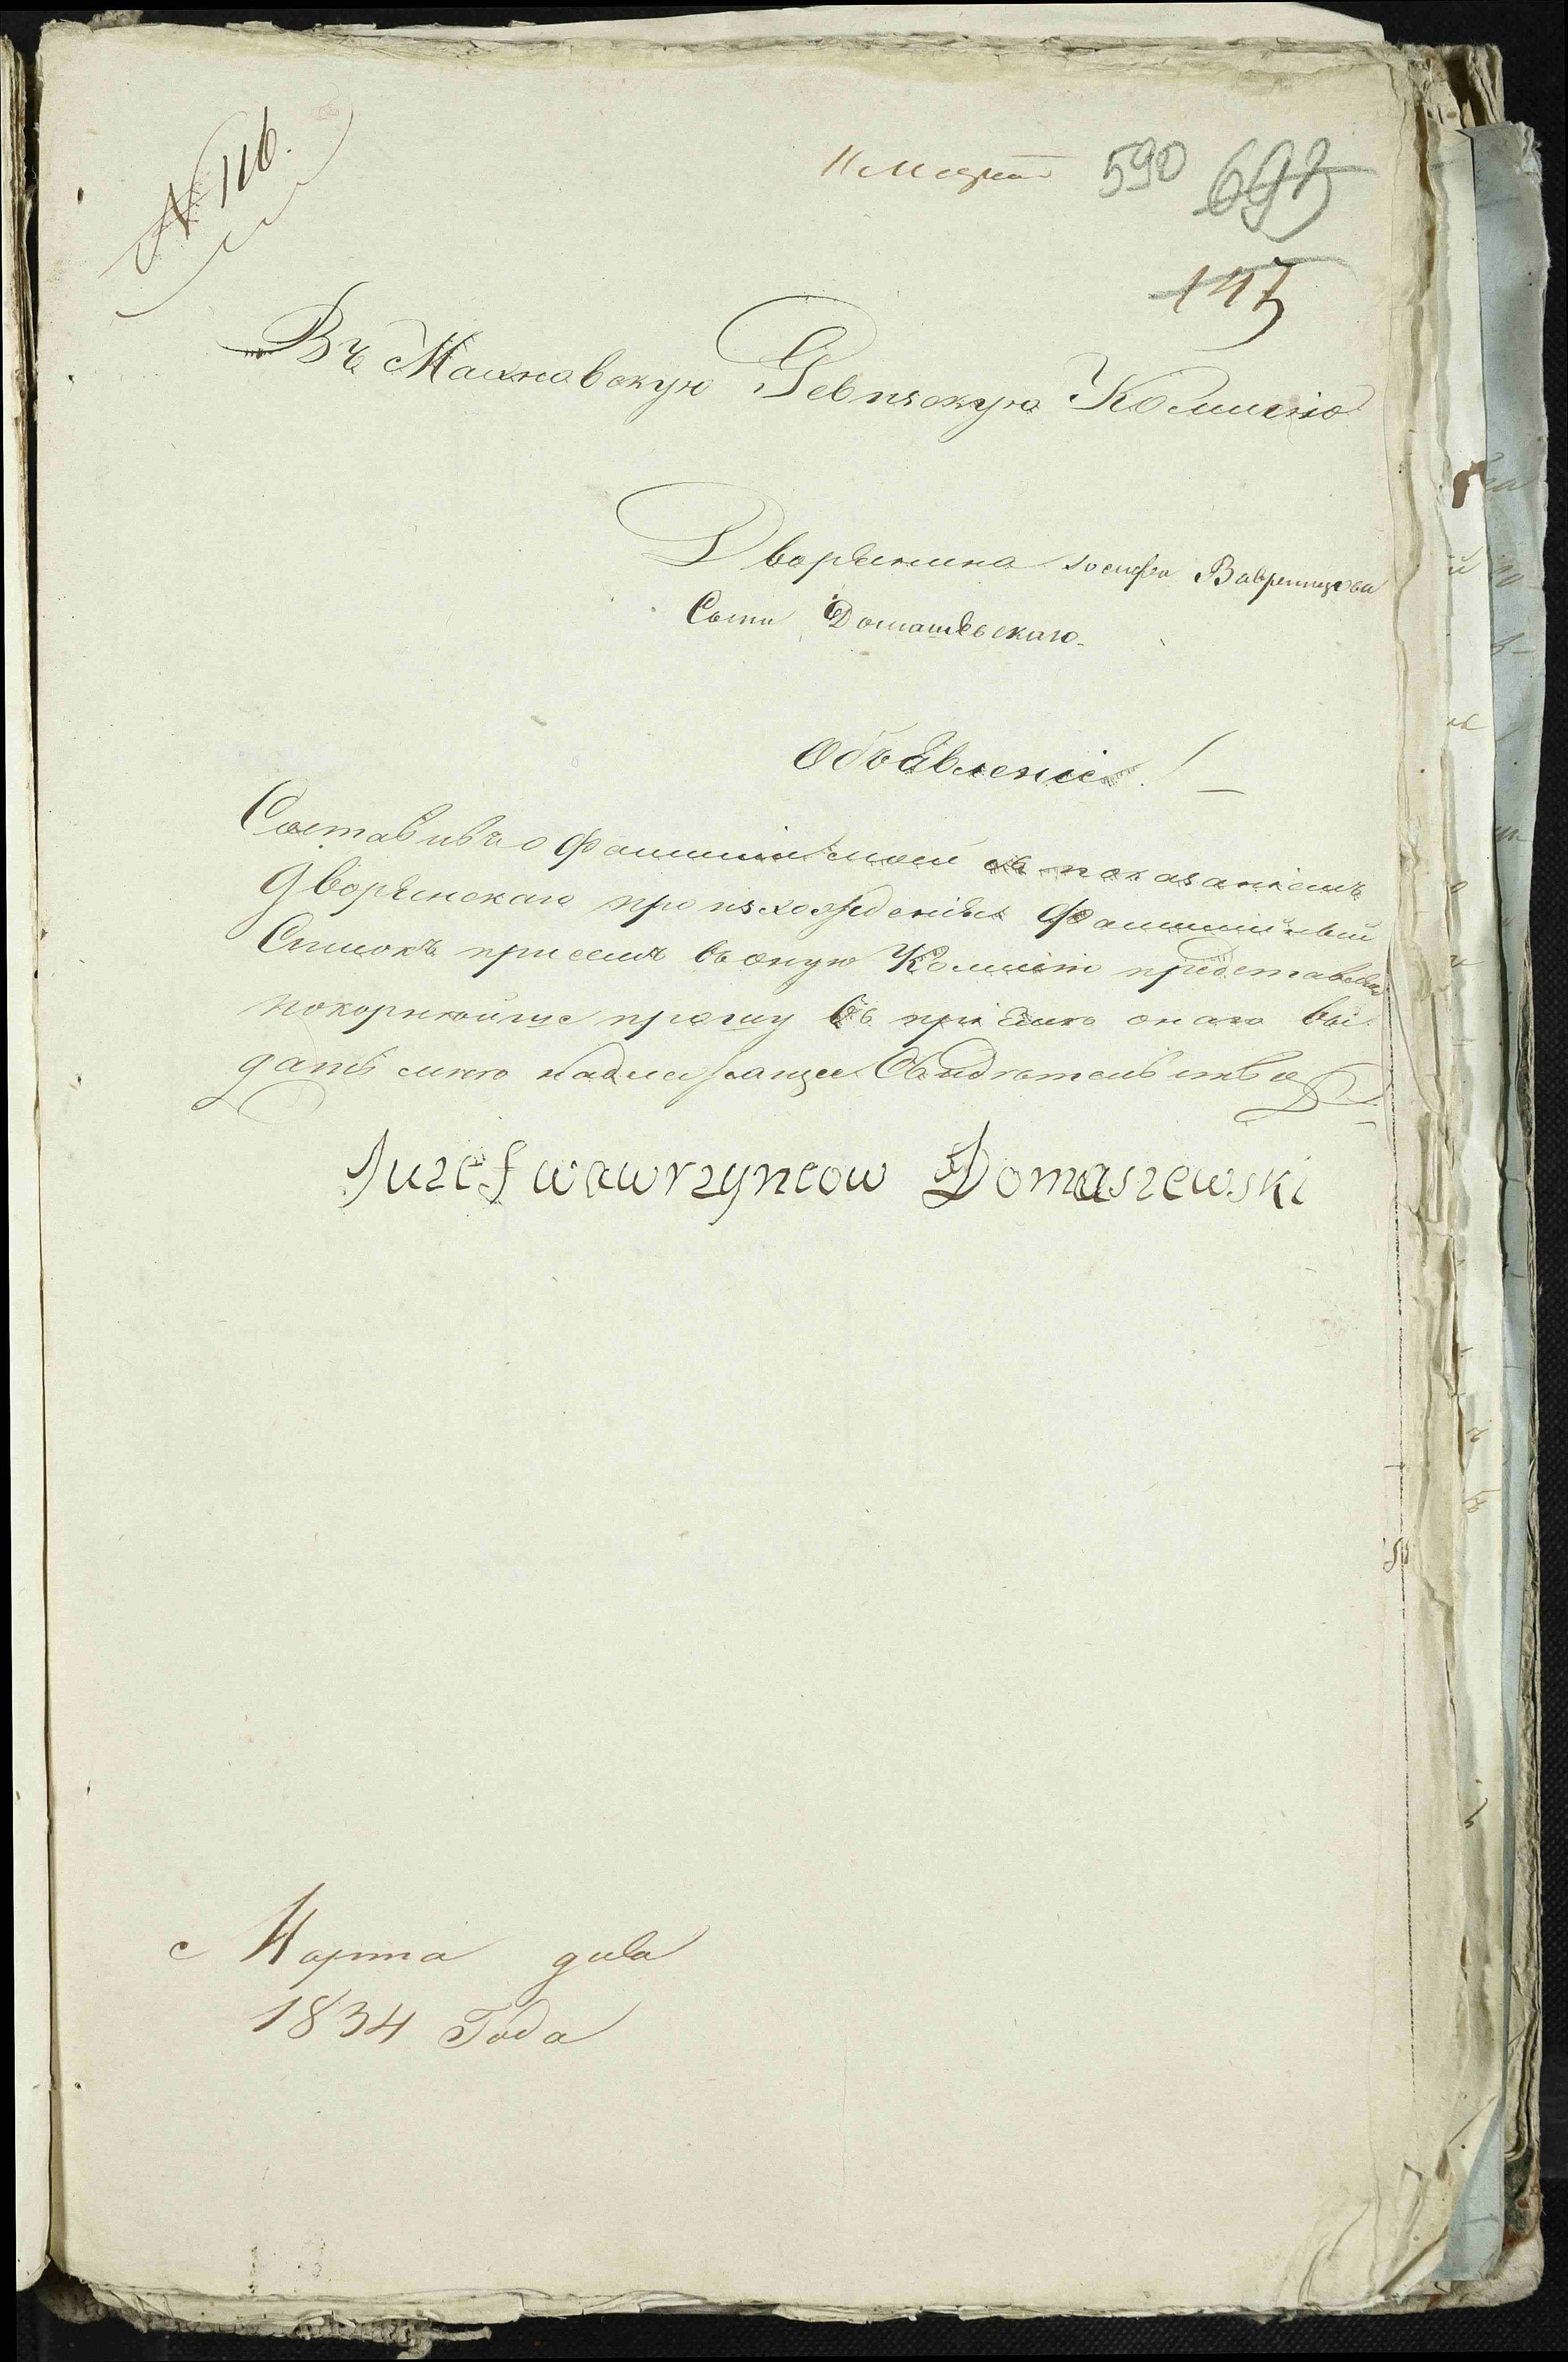 № 116.
11 Марта 590 693
147
Въ Махновскую Ревизскую Комисію
Дворянина Іосифа Вавренцова
Сына Домашевскаго
Объявленіе!
Составивъ о фамиліи моей съ показаніемъ
дворянскаго происхожденія фамилійный
Списокъ при семъ въ оную Комисію представляя
покорнюйше прошу въ пріёмъ онаго вы-
дать мню надлежащее Свидютельство
Juzef wawrzyncow Domaszewski
Марта дня
1834 Года